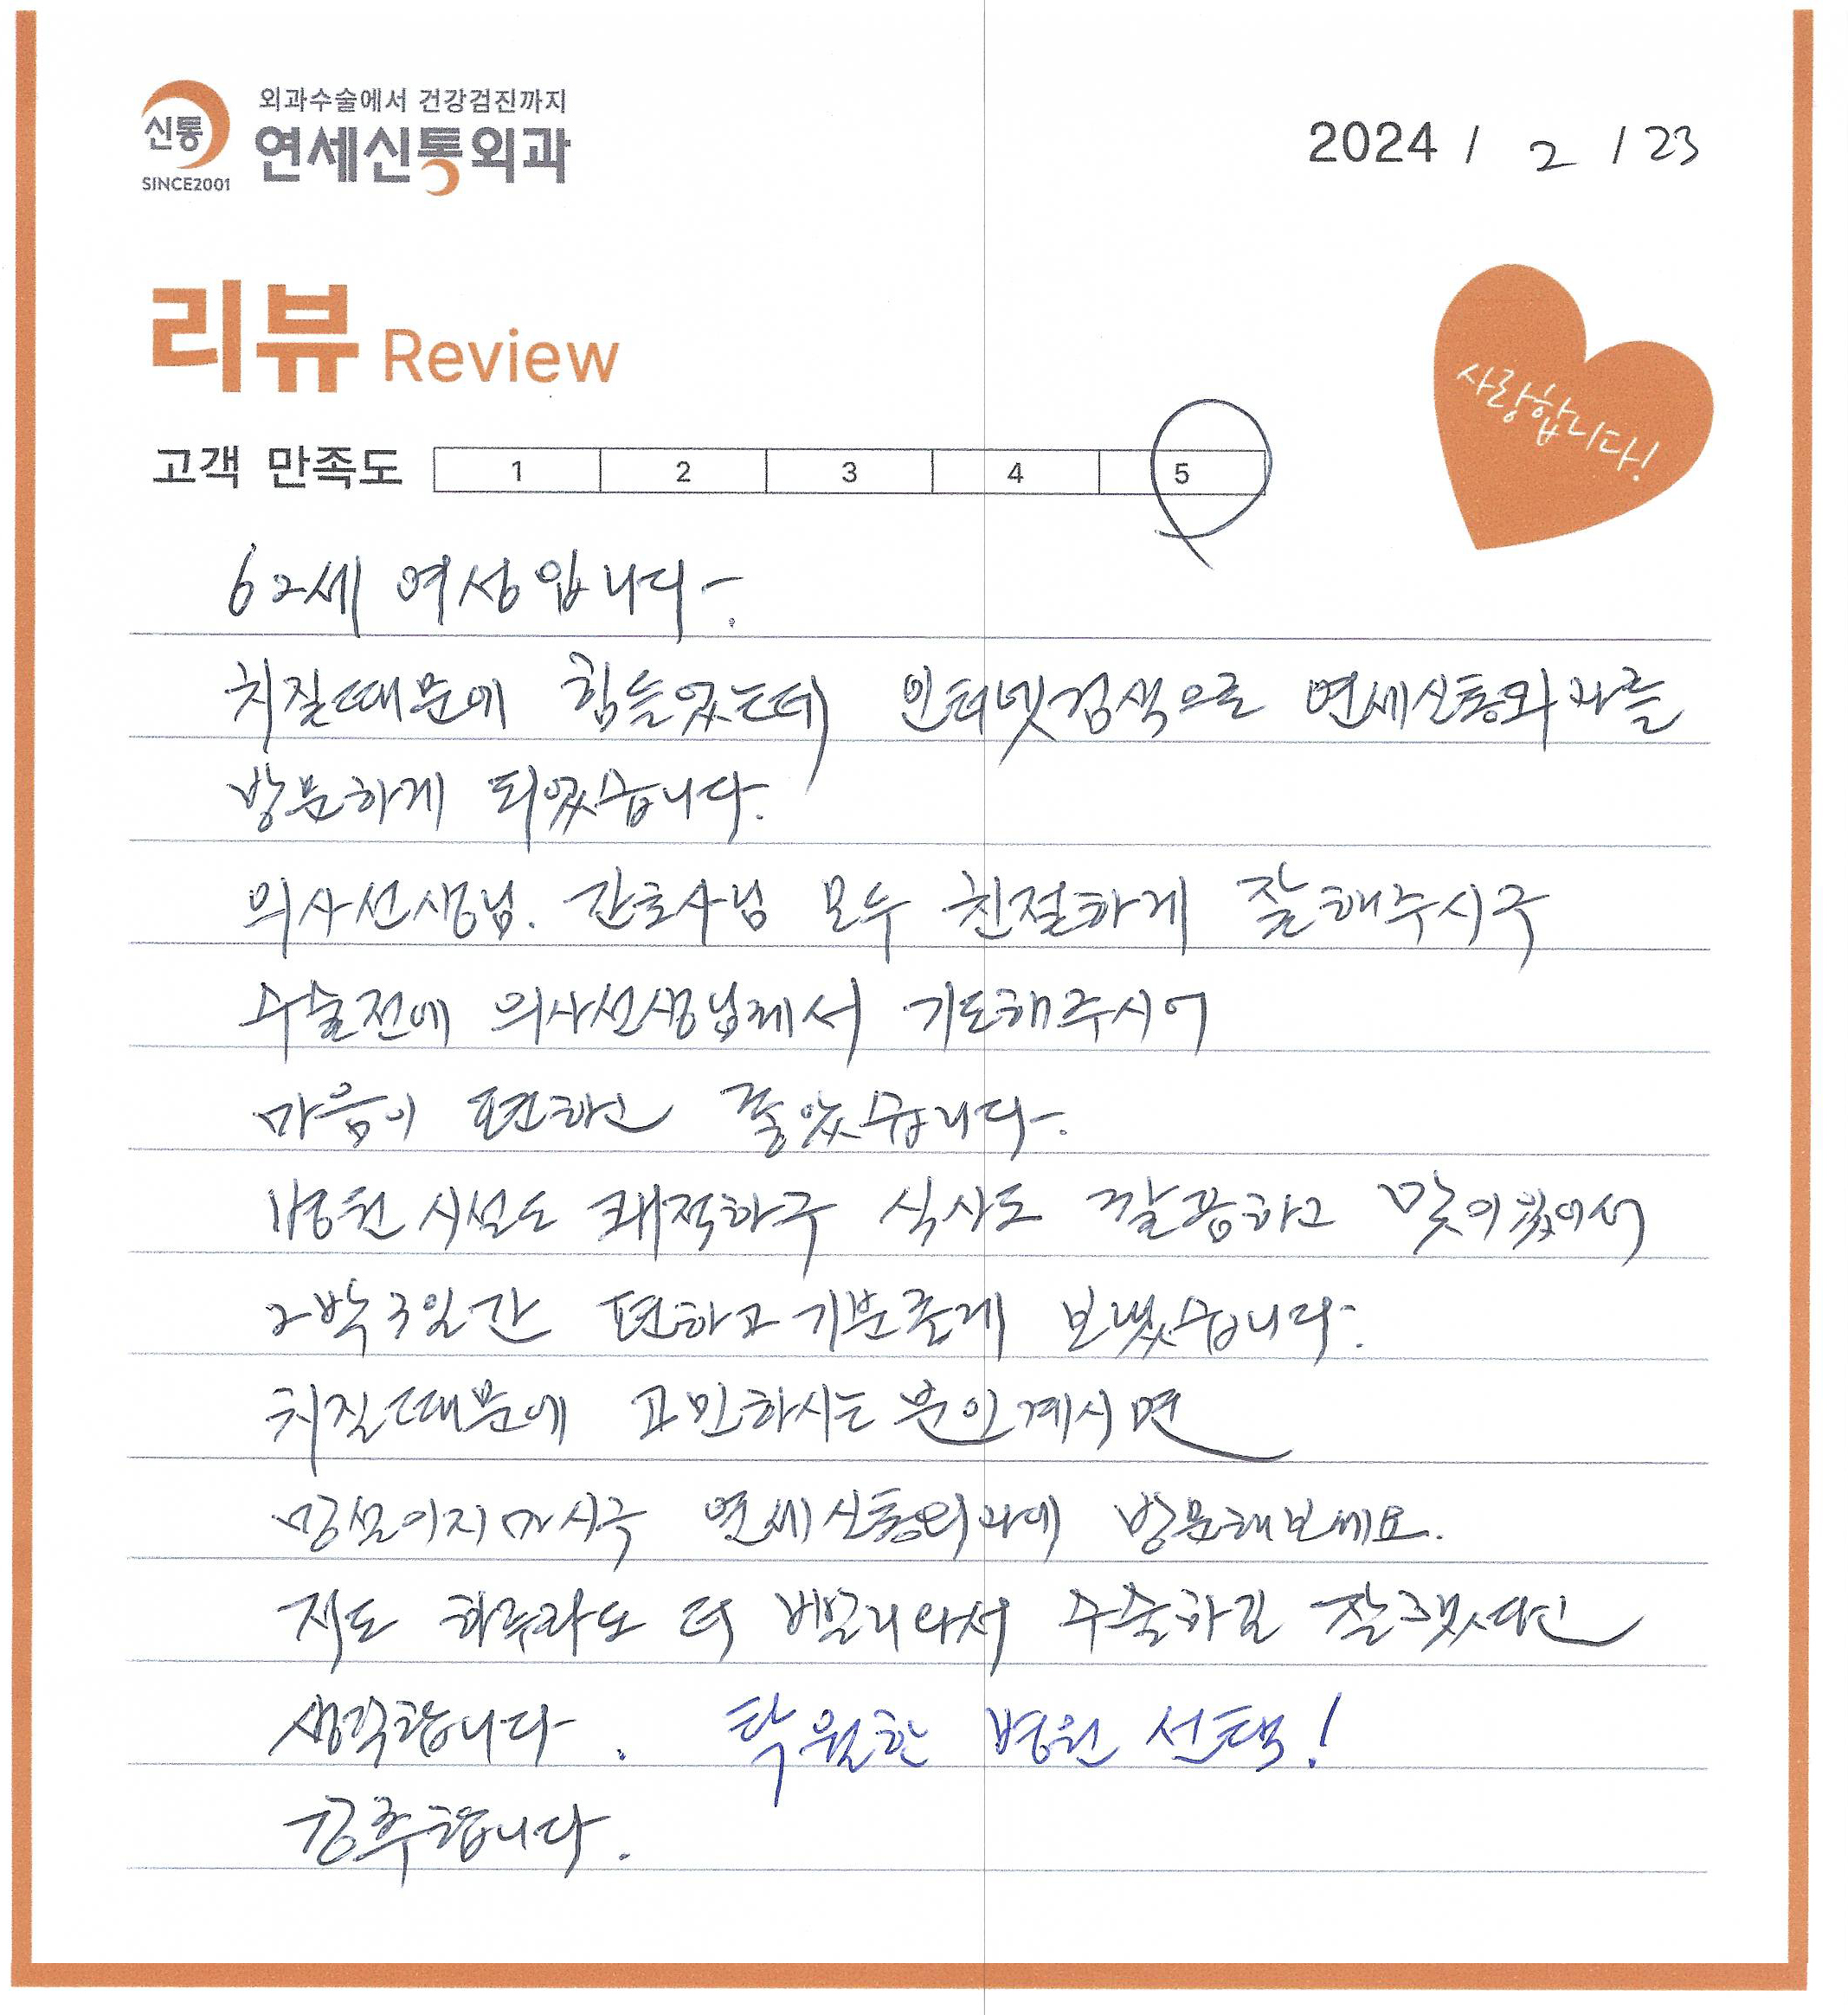 신통
SINCE2001
외과수술에서 건강검진까지
연세신통외과
2024 / 2 / 23
리뷰 Review
사랑합니다!
고객 만족도 1 2 3 4 5
62세 여성입니다.
치질때문에 힘들었는데 인터넷검색으로 연세신통외과를
방문하게 되었습니다.
의사선생님. 간호사님 모두 친절하게 잘해주시구
수술전에 의사선생님께서 기도해주시어
마음이 편하고 좋았습니다.
병원시설도 쾌적하구 식사도 깔끔하고 맛이있어서
2박3일간 편하고 기분좋게 보냈습니다.
치질때문에 고민하시는 분이계시면
망설이지마시구 연세신통외과에 방문해보세요.
저도 하루라도 더 빨리와서 수술하길 잘했다고
생각합니다. 탁월한 병원 선택!
강추합니다.